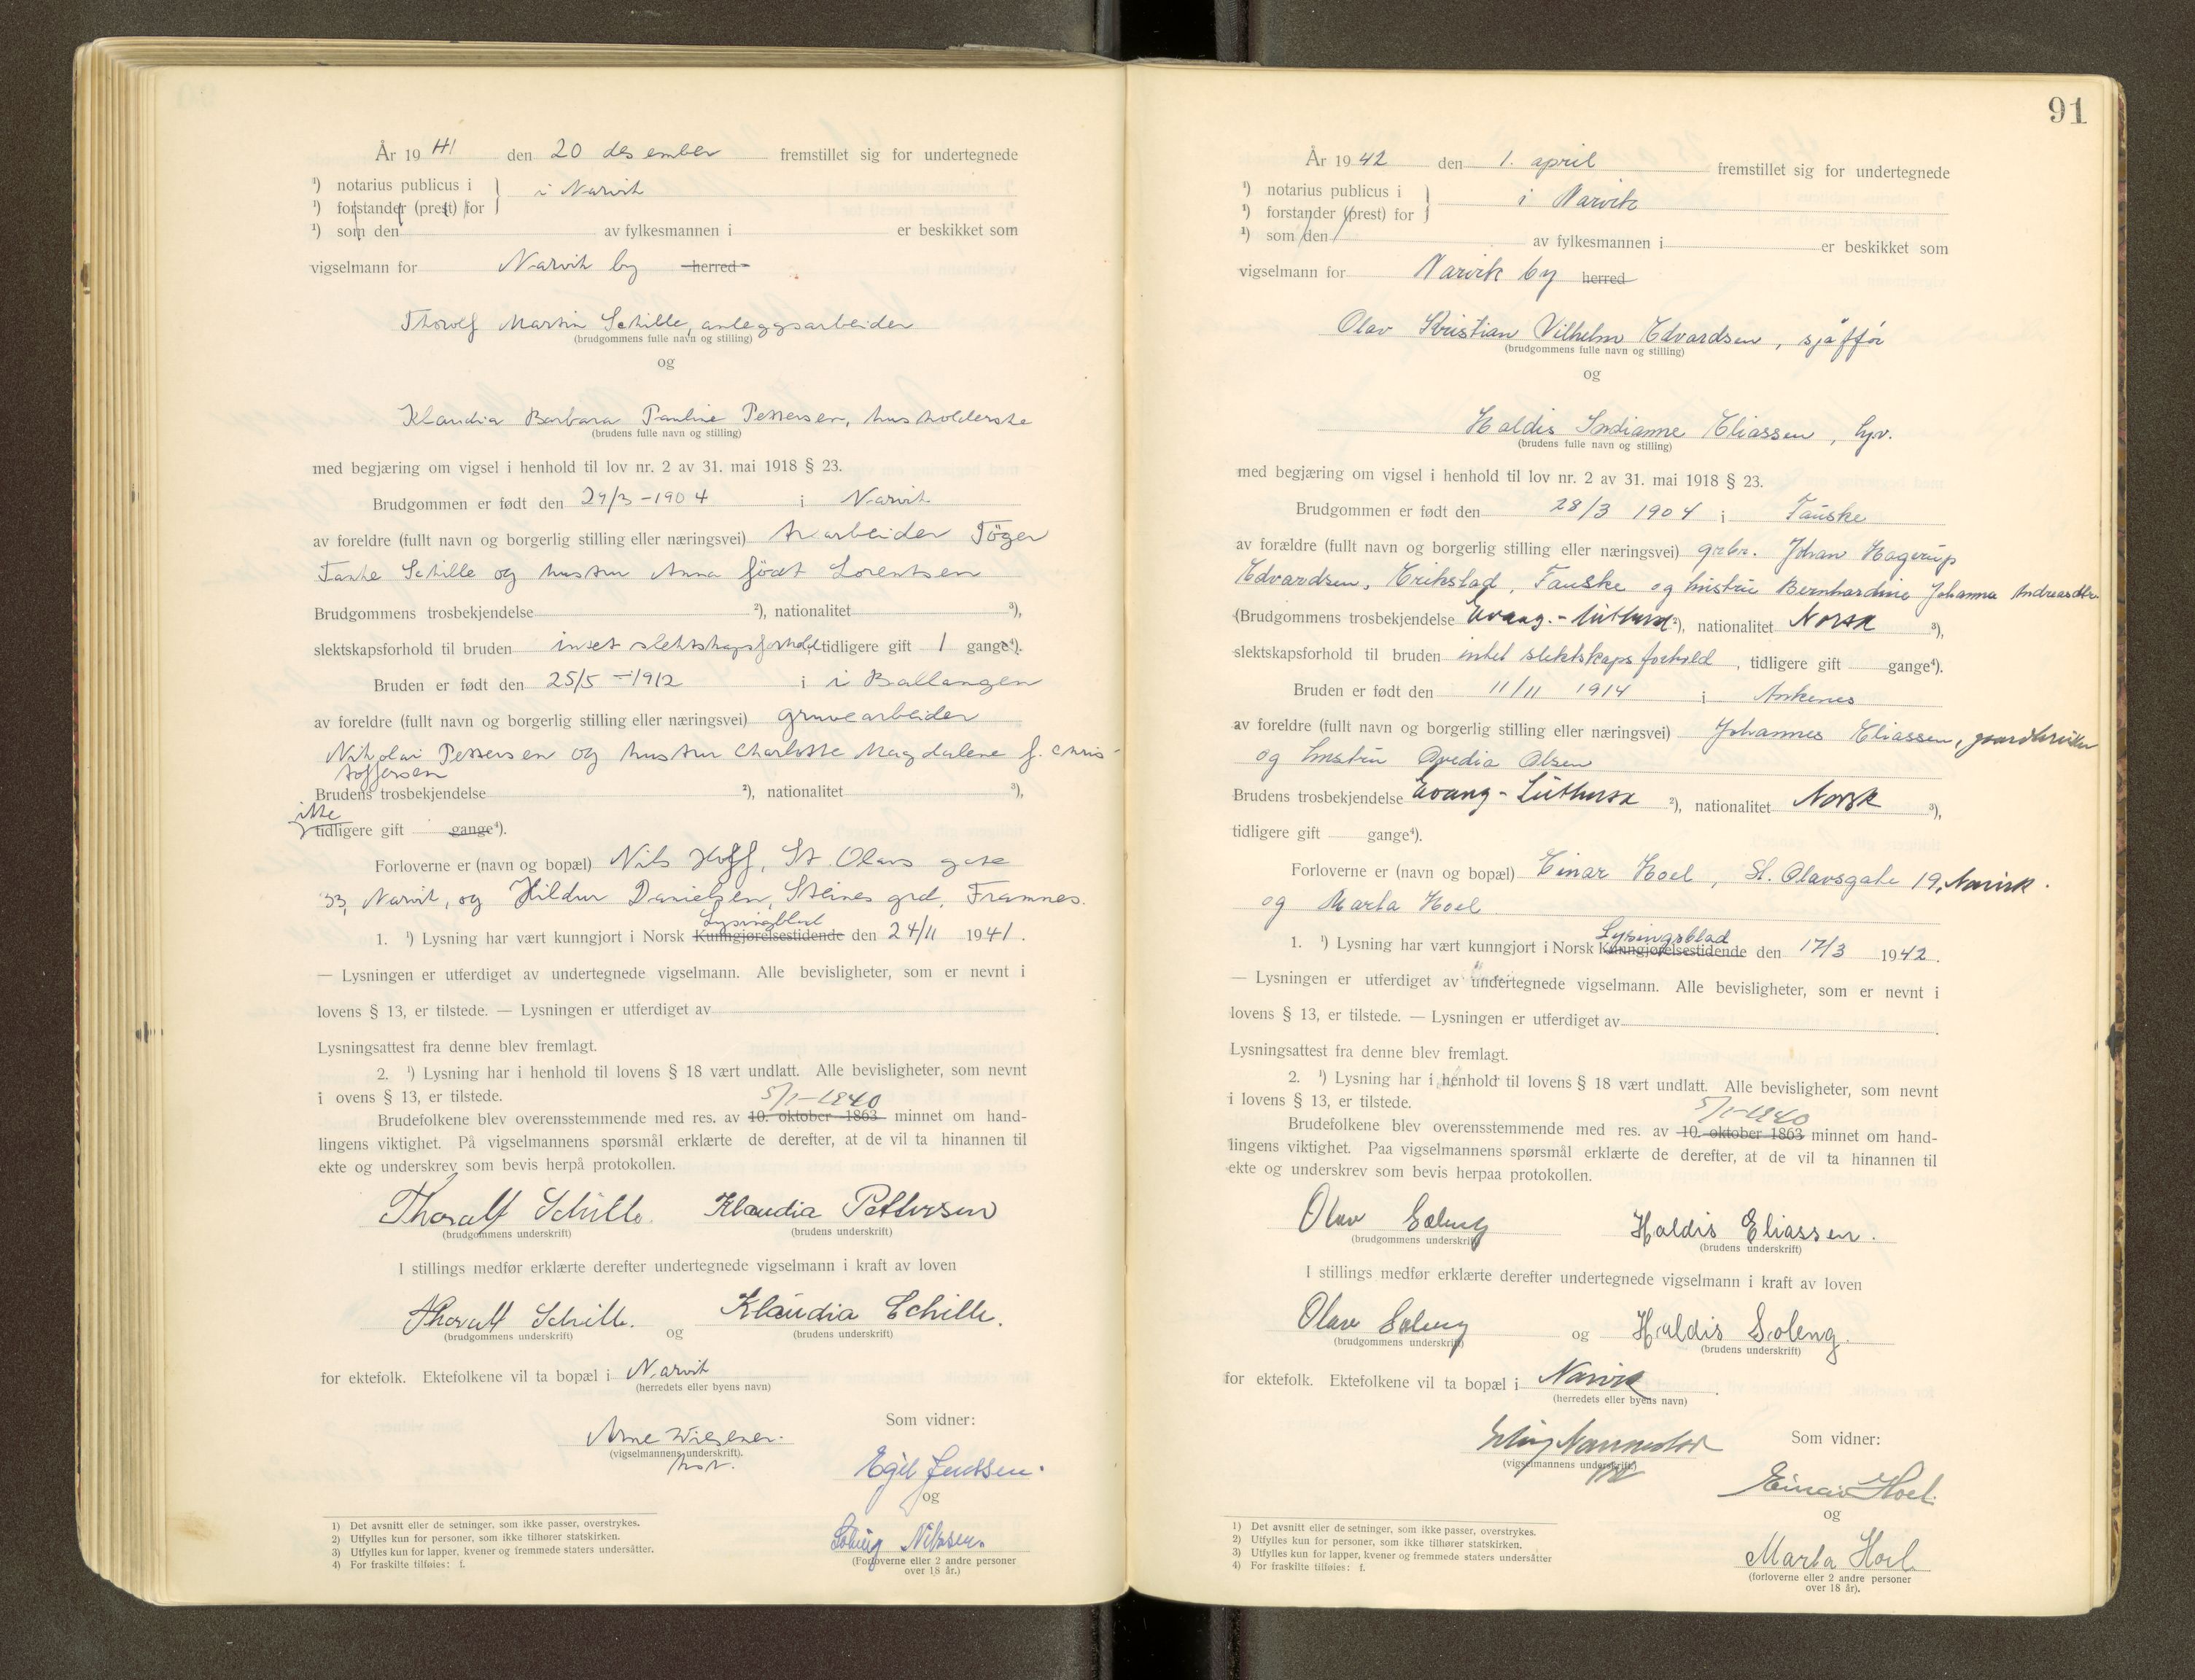 År 19 41 den 20 desember fremstillet sig for undertegnede
¹) notarius publicus i } i Narvik
¹) forstander (prest) for
¹) som den av fylkesmannen i er beskikket som
vigselmann for Narvik by herred
Thorolf Martin Schille, anleggsarbeider
(brudgommens fulle navn og stilling)
og
Klaudia Barbara Pauline Pettersen, husholderske
(brudens fulle navn og stilling)
med begjæring om vigsel i henhold til lov nr. 2 av 31. mai 1918 § 23.
Brudgommen er født den 29/3 - 1904 i Narvik
av foreldre (fullt navn og borgerlig stilling eller næringsvei) arbeider Töger
Tanke Schille og hustru Anna födt Lorentsen
Brudgommens trosbekjendelse ²), nationalitet ³),
slektskapsforhold til bruden intet slektskapsforhold tidligere gift 1 gange⁴).
Bruden er født den 25/5 - 1912 i i Ballangen
av foreldre (fullt navn og borgerlig stilling eller næringsvei) gruvearbeider
Nikolai Pettersen og hustru Charlotte Magdalene f. Chris-
toffersen
Brudens trosbekjendelse ²), nationalitet ³),
ikke
tidligere gift gange⁴).
Forloverne er (navn og bopæl) Nils Hoff, St. Olavs gate
33, Narvik, og Hildur Danielsen, Steines grd, Framnes.
Lysingsblad
1. ¹) Lysning har vært kunngjort i Norsk Kunngjørelsestidende den 24/11 1941.
— Lysningen er utferdiget av undertegnede vigselmann. Alle bevisligheter, som er nevnt i
lovens § 13, er tilstede. — Lysningen er utferdiget av
Lysningsattest fra denne blev fremlagt.
2. ¹) Lysning har i henhold til lovens § 18 vært undlatt. Alle bevisligheter, som nevnt
i ovens § 13, er tilstede.
5/1-1940
Brudefolkene blev overensstemmende med res. av 10. oktober 1863 minnet om hand-
lingens viktighet. På vigselmannens spørsmål erklærte de derefter, at de vil ta hinannen til
ekte og underskrev som bevis herpå protokollen.
Thoralf Schille. Klaudia Pettersen
(brudgommens underskrift) (brudens underskrift)
I stillings medfør erklærte derefter undertegnede vigselmann i kraft av loven
Thoralf Schille. og Klaudia Schille.
(brudgommens underskrift) (brudens underskrift)
for ektefolk. Ektefolkene vil ta bopæl i Narvik
(herredets eller byens navn)
Som vidner:
Arne Wiesener.
(vigselmannens underskrift).
Egil Jentsen.
og
Solveig Nilssen
(Forloverne eller 2 andre personer
over 18 år.)
1) Det avsnitt eller de setninger, som ikke passer, overstrykes.
2) Utfylles kun for personer, som ikke tilhører statskirken.
3) Utfylles kun for lapper, kvener og fremmede staters undersåtter.
4) For fraskilte tilføies: f.
91
År 19 42 den 1. april fremstillet sig for undertegnede
¹) notarius publicus i } i Narvik
¹) forstander (prest) for
¹) som den av fylkesmannen i er beskikket som
vigselmann for Narvik by herred
Olav Kristian Vilhelm Edvardsen, sjåffør
(brudgommens fulle navn og stilling)
og
Haldis Indianne Eliassen, hjv.
(brudens fulle navn og stilling)
med begjæring om vigsel i henhold til lov nr. 2 av 31. mai 1918 § 23.
Brudgommen er født den 28/3 1904 i Fauske
av forældre (fullt navn og borgerlig stilling eller næringsvei) grbr. Johan Hagerup
Edvardsen, Erikstad, Fauske og hustru Bernhardine Johanna Andreasdtr
(Brudgommens trosbekjendelse Evang.-luthersk ²), nationalitet Norsk ³),
slektskapsforhold til bruden intet slektskapsforhold, tidligere gift gange⁴).
Bruden er født den 11/11 1914 i Ankenes
av foreldre (fullt navn og borgerlig stilling eller næringsvei) Johannes Eliassen, gaardbruker
og hustru Ovedia Olsen
Brudens trosbekjendelse Evang-Luthersk ²), nationalitet Norsk ³),
tidligere gift gange⁴).
Forloverne er (navn og bopæl) Einar Hoel, St. Olavsgate 19, Narvik.
og Marta Hoel
Lysingsblad
1. ¹) Lysning har vært kunngjort i Norsk Kunngjørelsestidende den 17/3 1942.
— Lysningen er utferdiget av undertegnede vigselmann. Alle bevisligheter, som er nevnt i
lovens § 13, er tilstede. — Lysningen er utferdiget av
Lysningsattest fra denne blev fremlagt.
2. ¹) Lysning har i henhold til lovens § 18 vært undlatt. Alle bevisligheter, som nevnt
i lovens § 13, er tilstede.
5/1-1940
Brudefolkene blev overensstemmende med res. av 10. oktober 1863 minnet om hand-
lingens viktighet. Paa vigselmannens spørsmål erklærte de derefter, at de vil ta hinannen til
ekte og underskrev som bevis herpaa protokollen.
Olav Soleng Haldis Eliassen.
(brudgommens underskrift) (brudens underskrift)
I stillings medfør erklærte derefter undertegnede vigselmann i kraft av loven
Olav Soleng og Haldis Soleng.
(brudgommens underskrift) (brudens underskrift)
for ektefolk. Ektefolkene vil ta bopæl i Narvik.
(herredets eller byens navn)
Som vidner:
(vigselmannens underskrift)
Einar Hoel.
og
Marta Hoel
(forloverne eller 2 andre personer
over 18 år).
1) Det avsnitt eller de setninger, som ikke passer, overstrykes.
2) Utfylles kun for personer, som ikke tilhører statskirken.
3) Utfylles kun for lapper, kvener og fremmede staters undersåtter
4) For fraskilte tilføies: f.